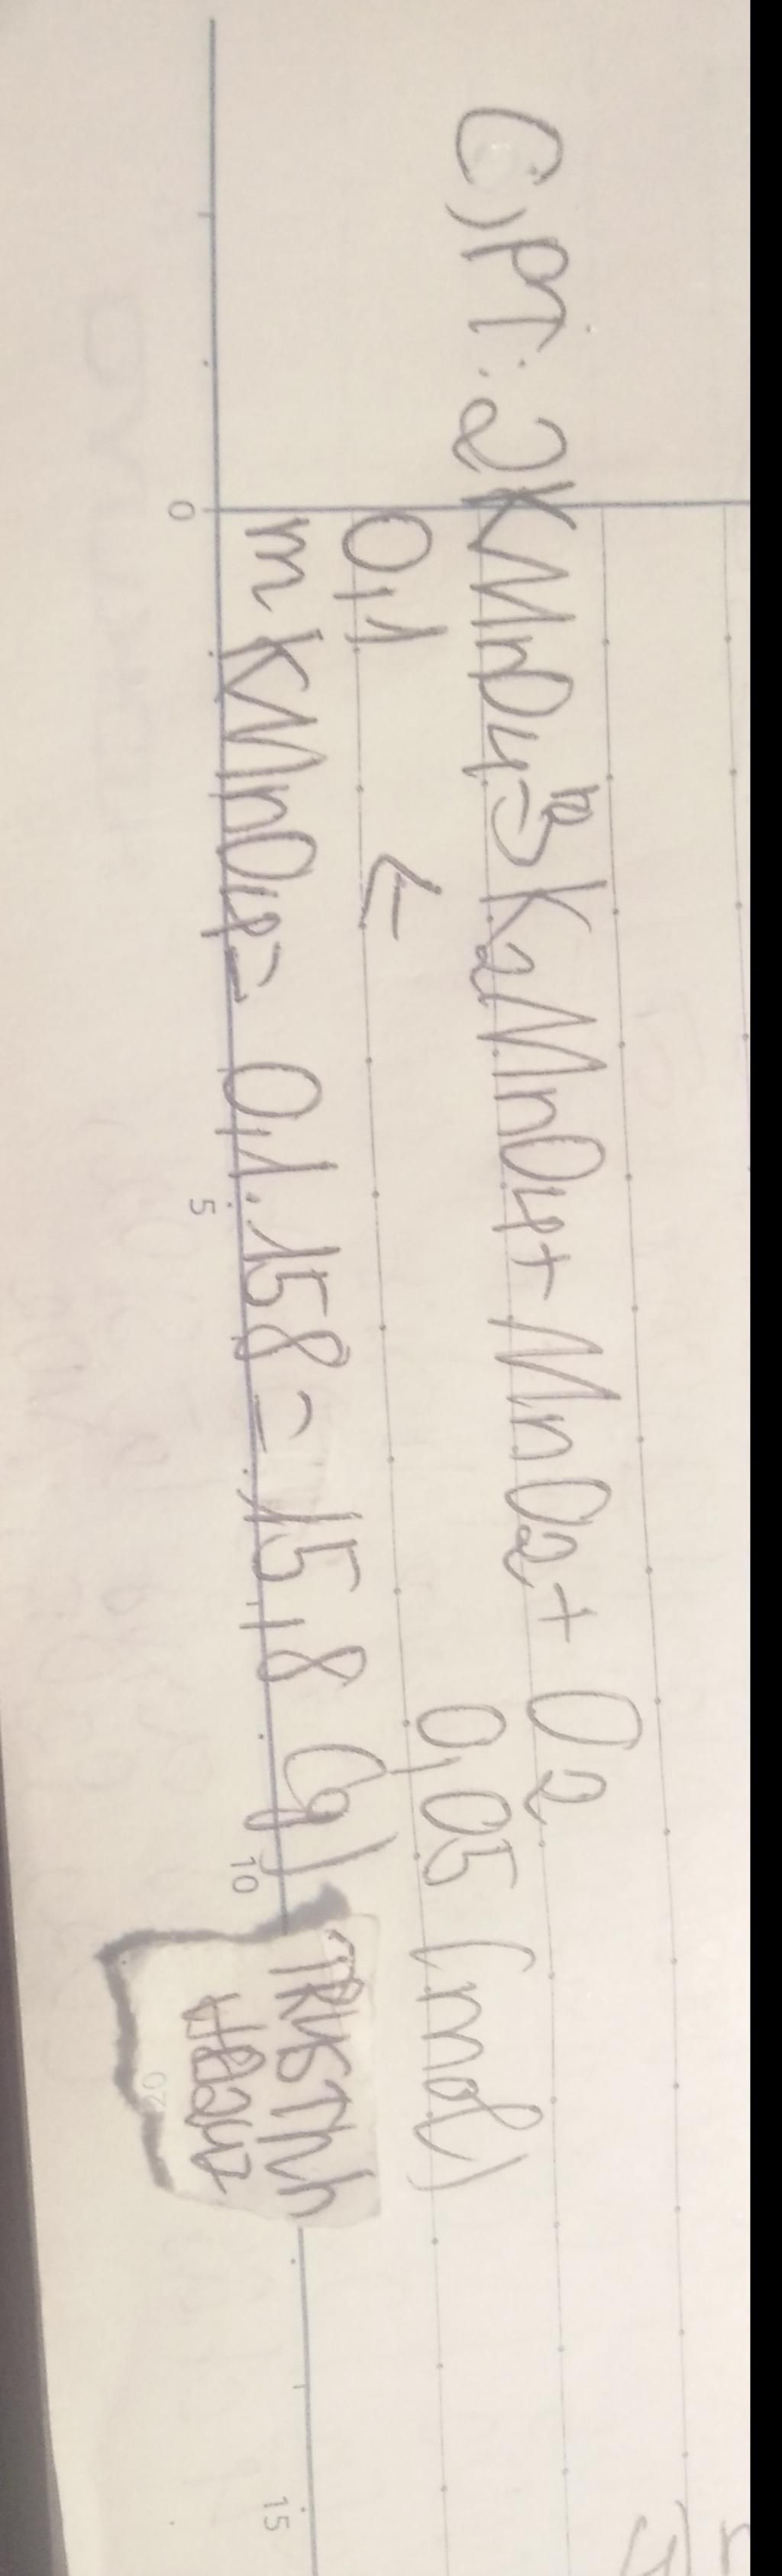 C, PT: 2KMnO4 t°→ K2MnO4 + MnO2 + O2
0,1 ← 0,05 (mol)
mKMnO4 = 0,1.158 = 15,8 (g)
0 5 10 15